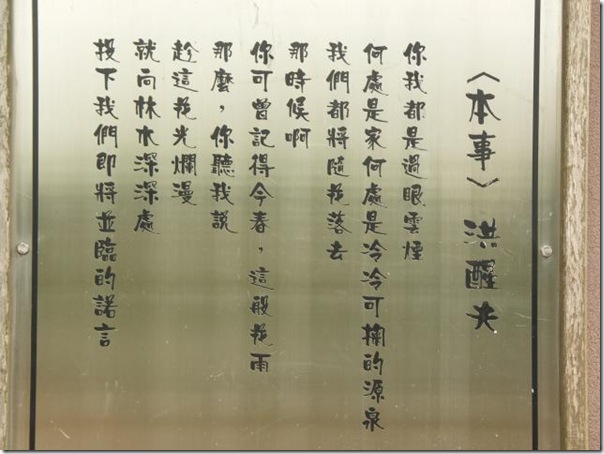 〈本事〉 洪醒夫
你我都是過眼雲煙
何處是家何處是冷冷可掬的源泉
我們都將隨花落去
那時候啊
你可曾記得今春，這般花雨
那麼，你聽我說
趁這花光爛漫
就向林木深深處
投下我們即將並臨的諾言